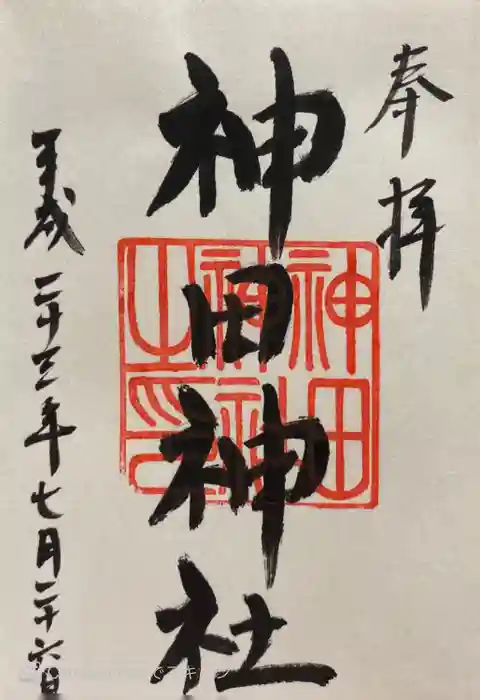 奉拝
神田神社
神田
神社
之印
平成二十三年七月二十六日